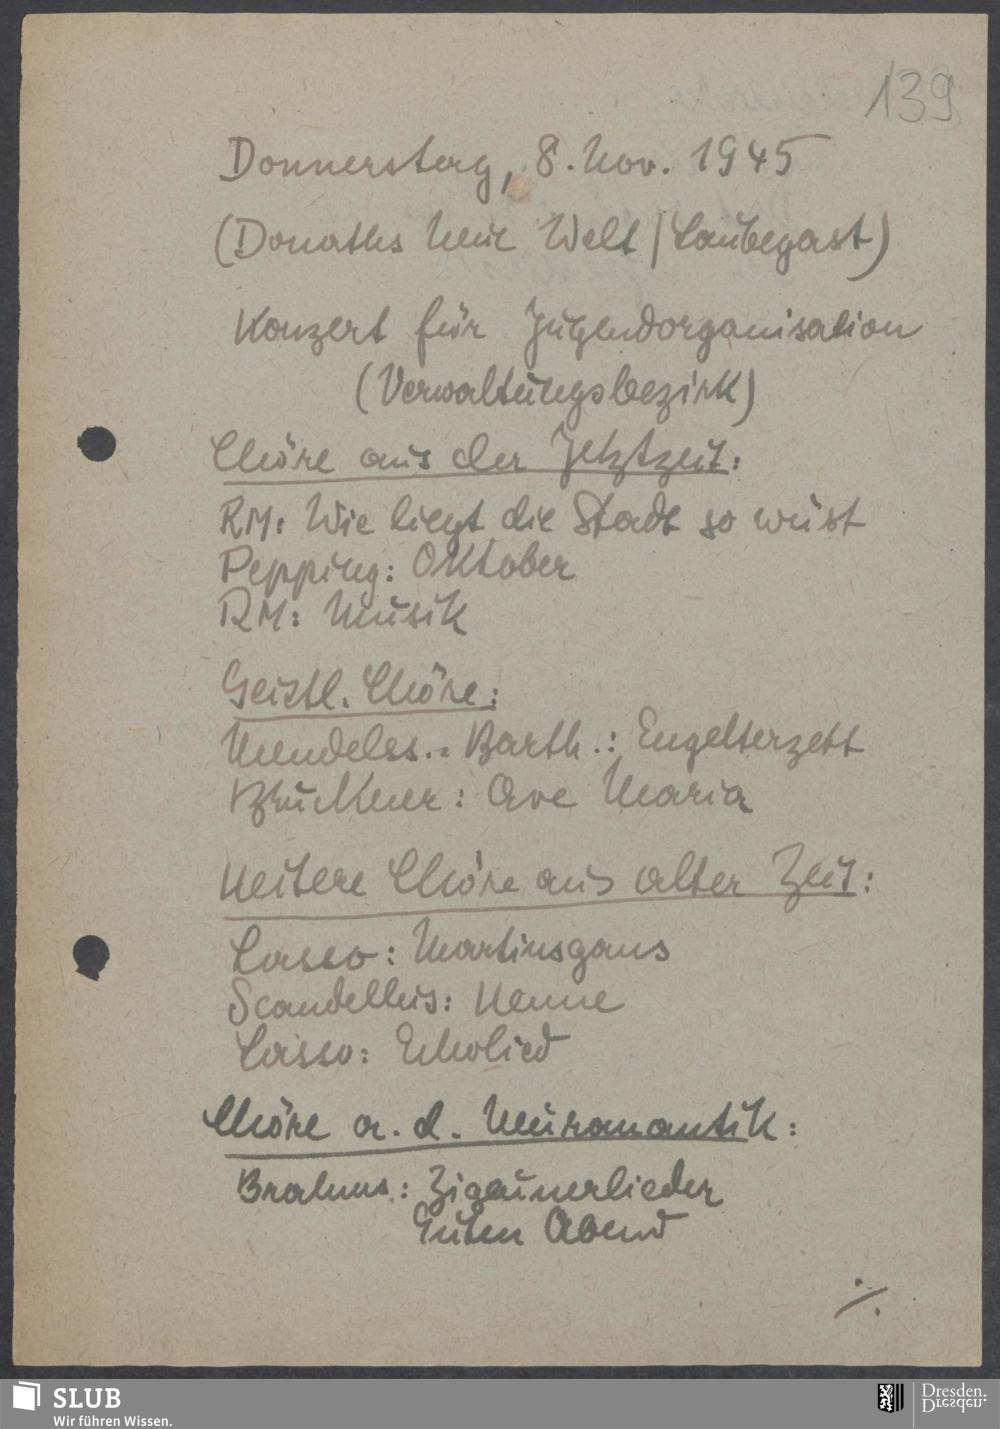 139
Donnerstag, 8. Nov. 1945
(Donaths Neue Welt / Laubegast)
Konzert für Jugendorganisation
(Verwaltungsbezirk)
Chöre aus der Jetztzeit:
RM: Wie liegt die Stadt so wüst
Pepping: Oktober
RM: Musik
Geistl. Chöre:
Mendelss.-Barth.: Engelterzett
Bruckner: Ave Maria
Heitere Chöre aus alter Zeit:
Lasso: Martinsgans
Scandellus: Henne
Lasso: Echolied
Chöre a. d. Neuromantik:
Brahms: Zigeunerlieder
Guten Abend
./.
SLUB
Wir führen Wissen.
Dresden.
Dresden.